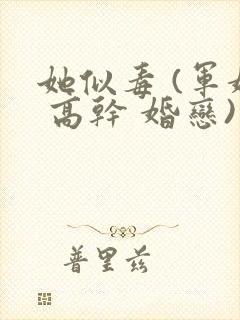 她似毒(軍
高幹 婚戀)
普里茲